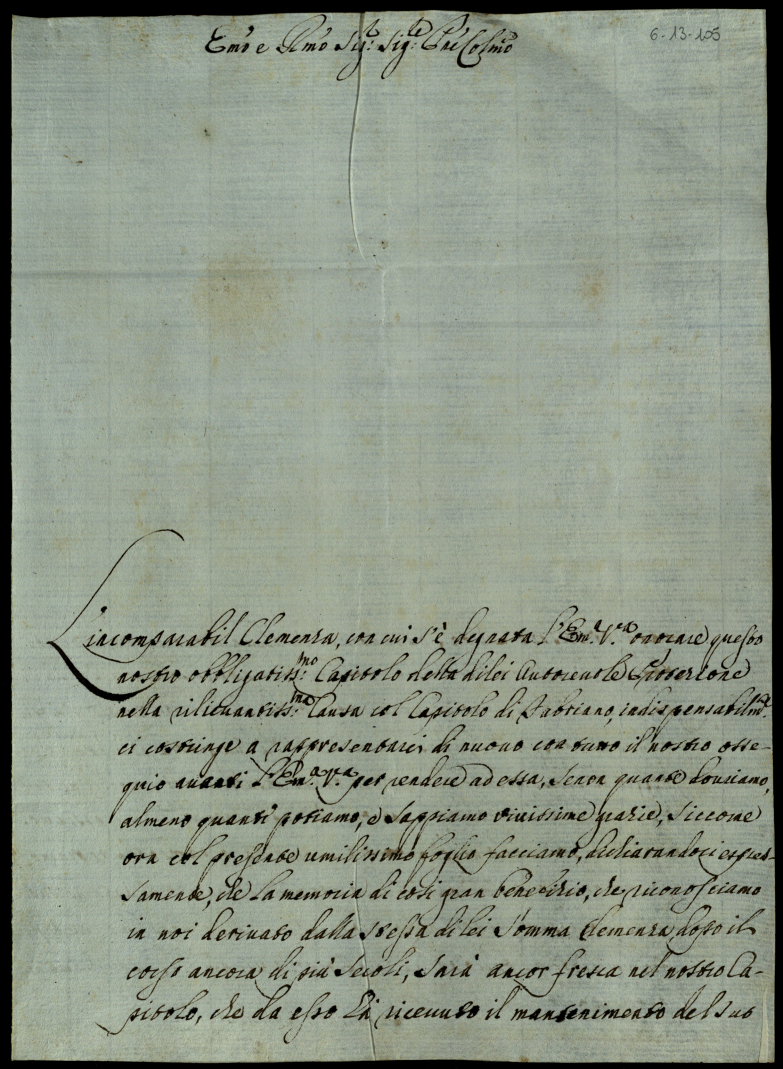 Emo e Rmo Sigr: Sigr: Prne Colmo
6-13-105
L'incomparabil Clemenza, con cui s'è degnata l'Ema. Va. onorare questo
nostro obbligatissmo: Capitolo della di lei Autorevole Protezione
nella rilevantissma: Causa col Capitolo di Fabriano, indispensabilmte.
ci costringe a rappresentarci di nuovo con tutto il nostro osse-
quio avanti l'Ema. Va. per rendere ad essa, se non quante dovriamo,
almeno quanti potiamo, e sappiamo vivissime grazie, siccome
ora col presente umilissimo foglio facciamo, dichiarandoci espres-
samente, che la memoria di così gran benefizio, che riconosciamo
in noi derivato dalla stessa di lei somma Clemenza dopo il
corso ancora di più secoli, sarà ancor fresca nel nostro Ca-
pitolo, che da esso hà ricevuto il mantenimento del suo